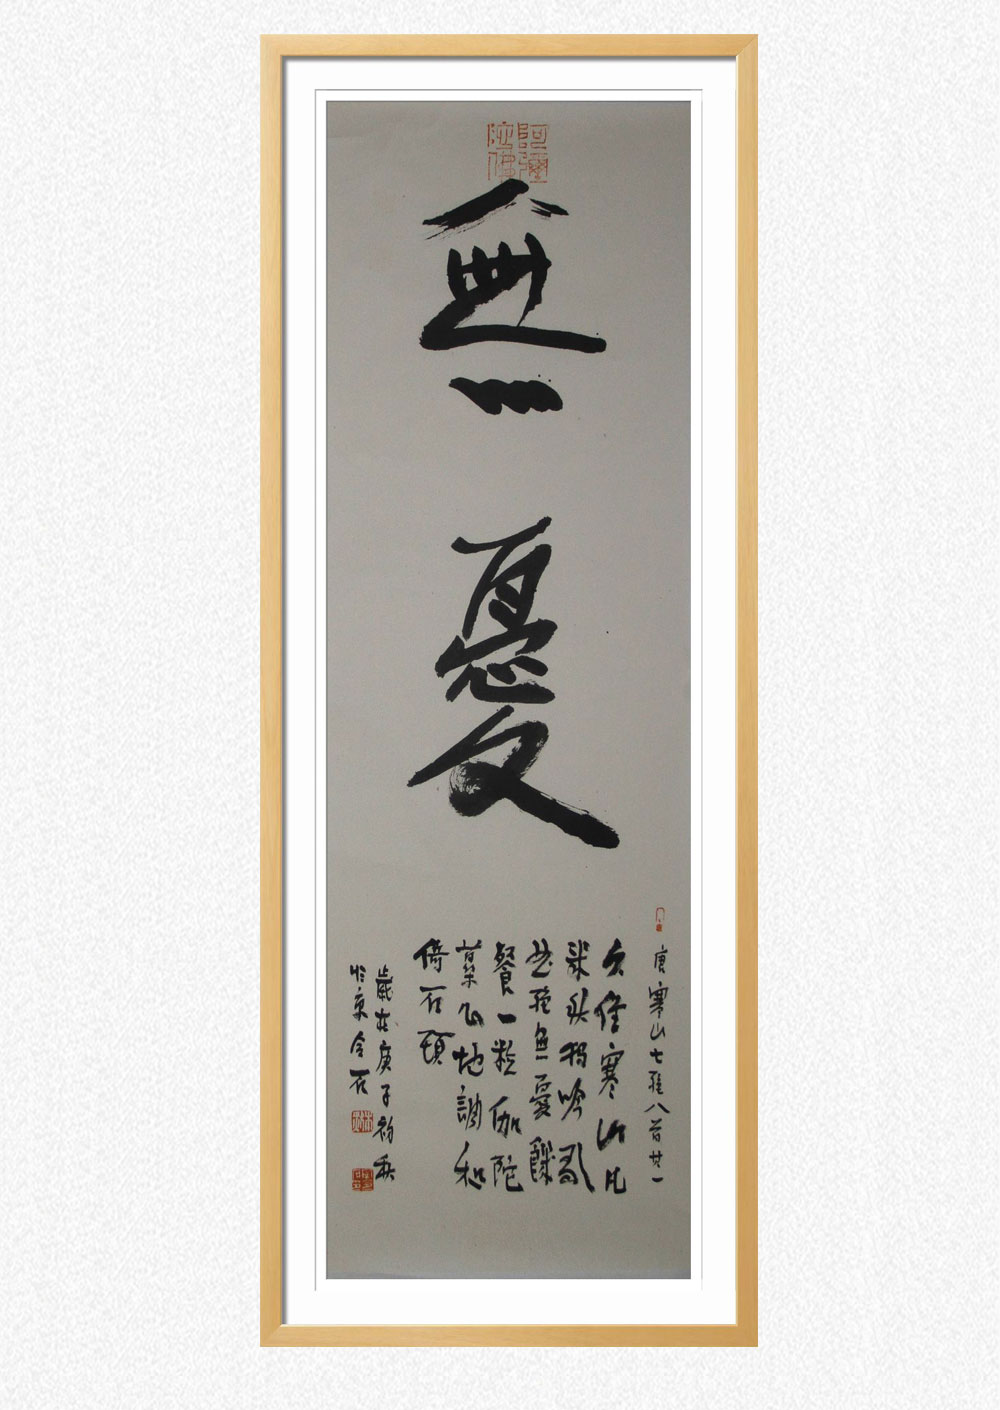 阿彌
陀佛
無憂
唐寒山七絕八首其一
久住寒山凡
幾秋獨吟歌
曲絕無憂飢
餐一粒伽陀
藥心地調和
倚石頭
歲在庚子初秋
於京